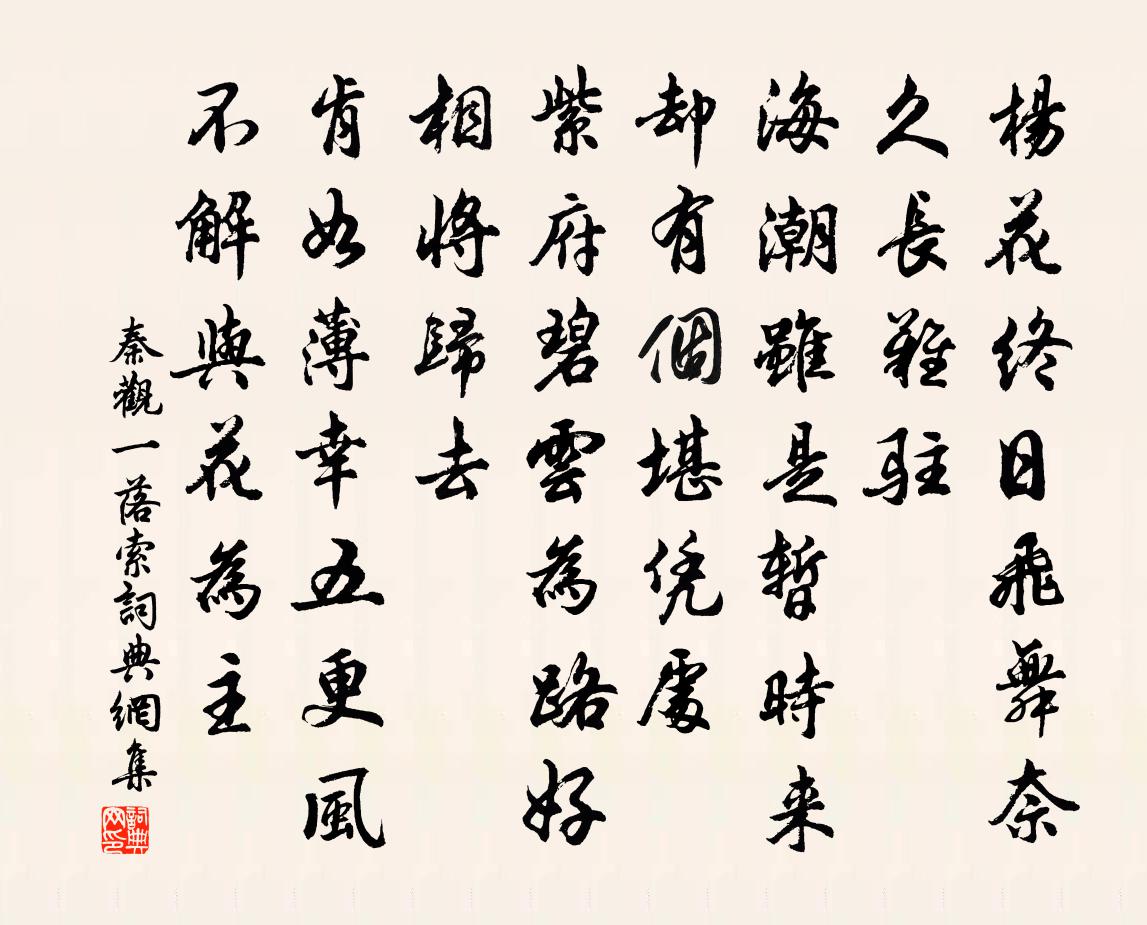 楊花終日飛舞奈
久長難駐
海潮雖是暫時来
却有個堪凭處
紫府碧雲為路好
相將歸去
肯如薄幸五更風
不解與花為主
秦觀一落索詞典網集
詞典網印